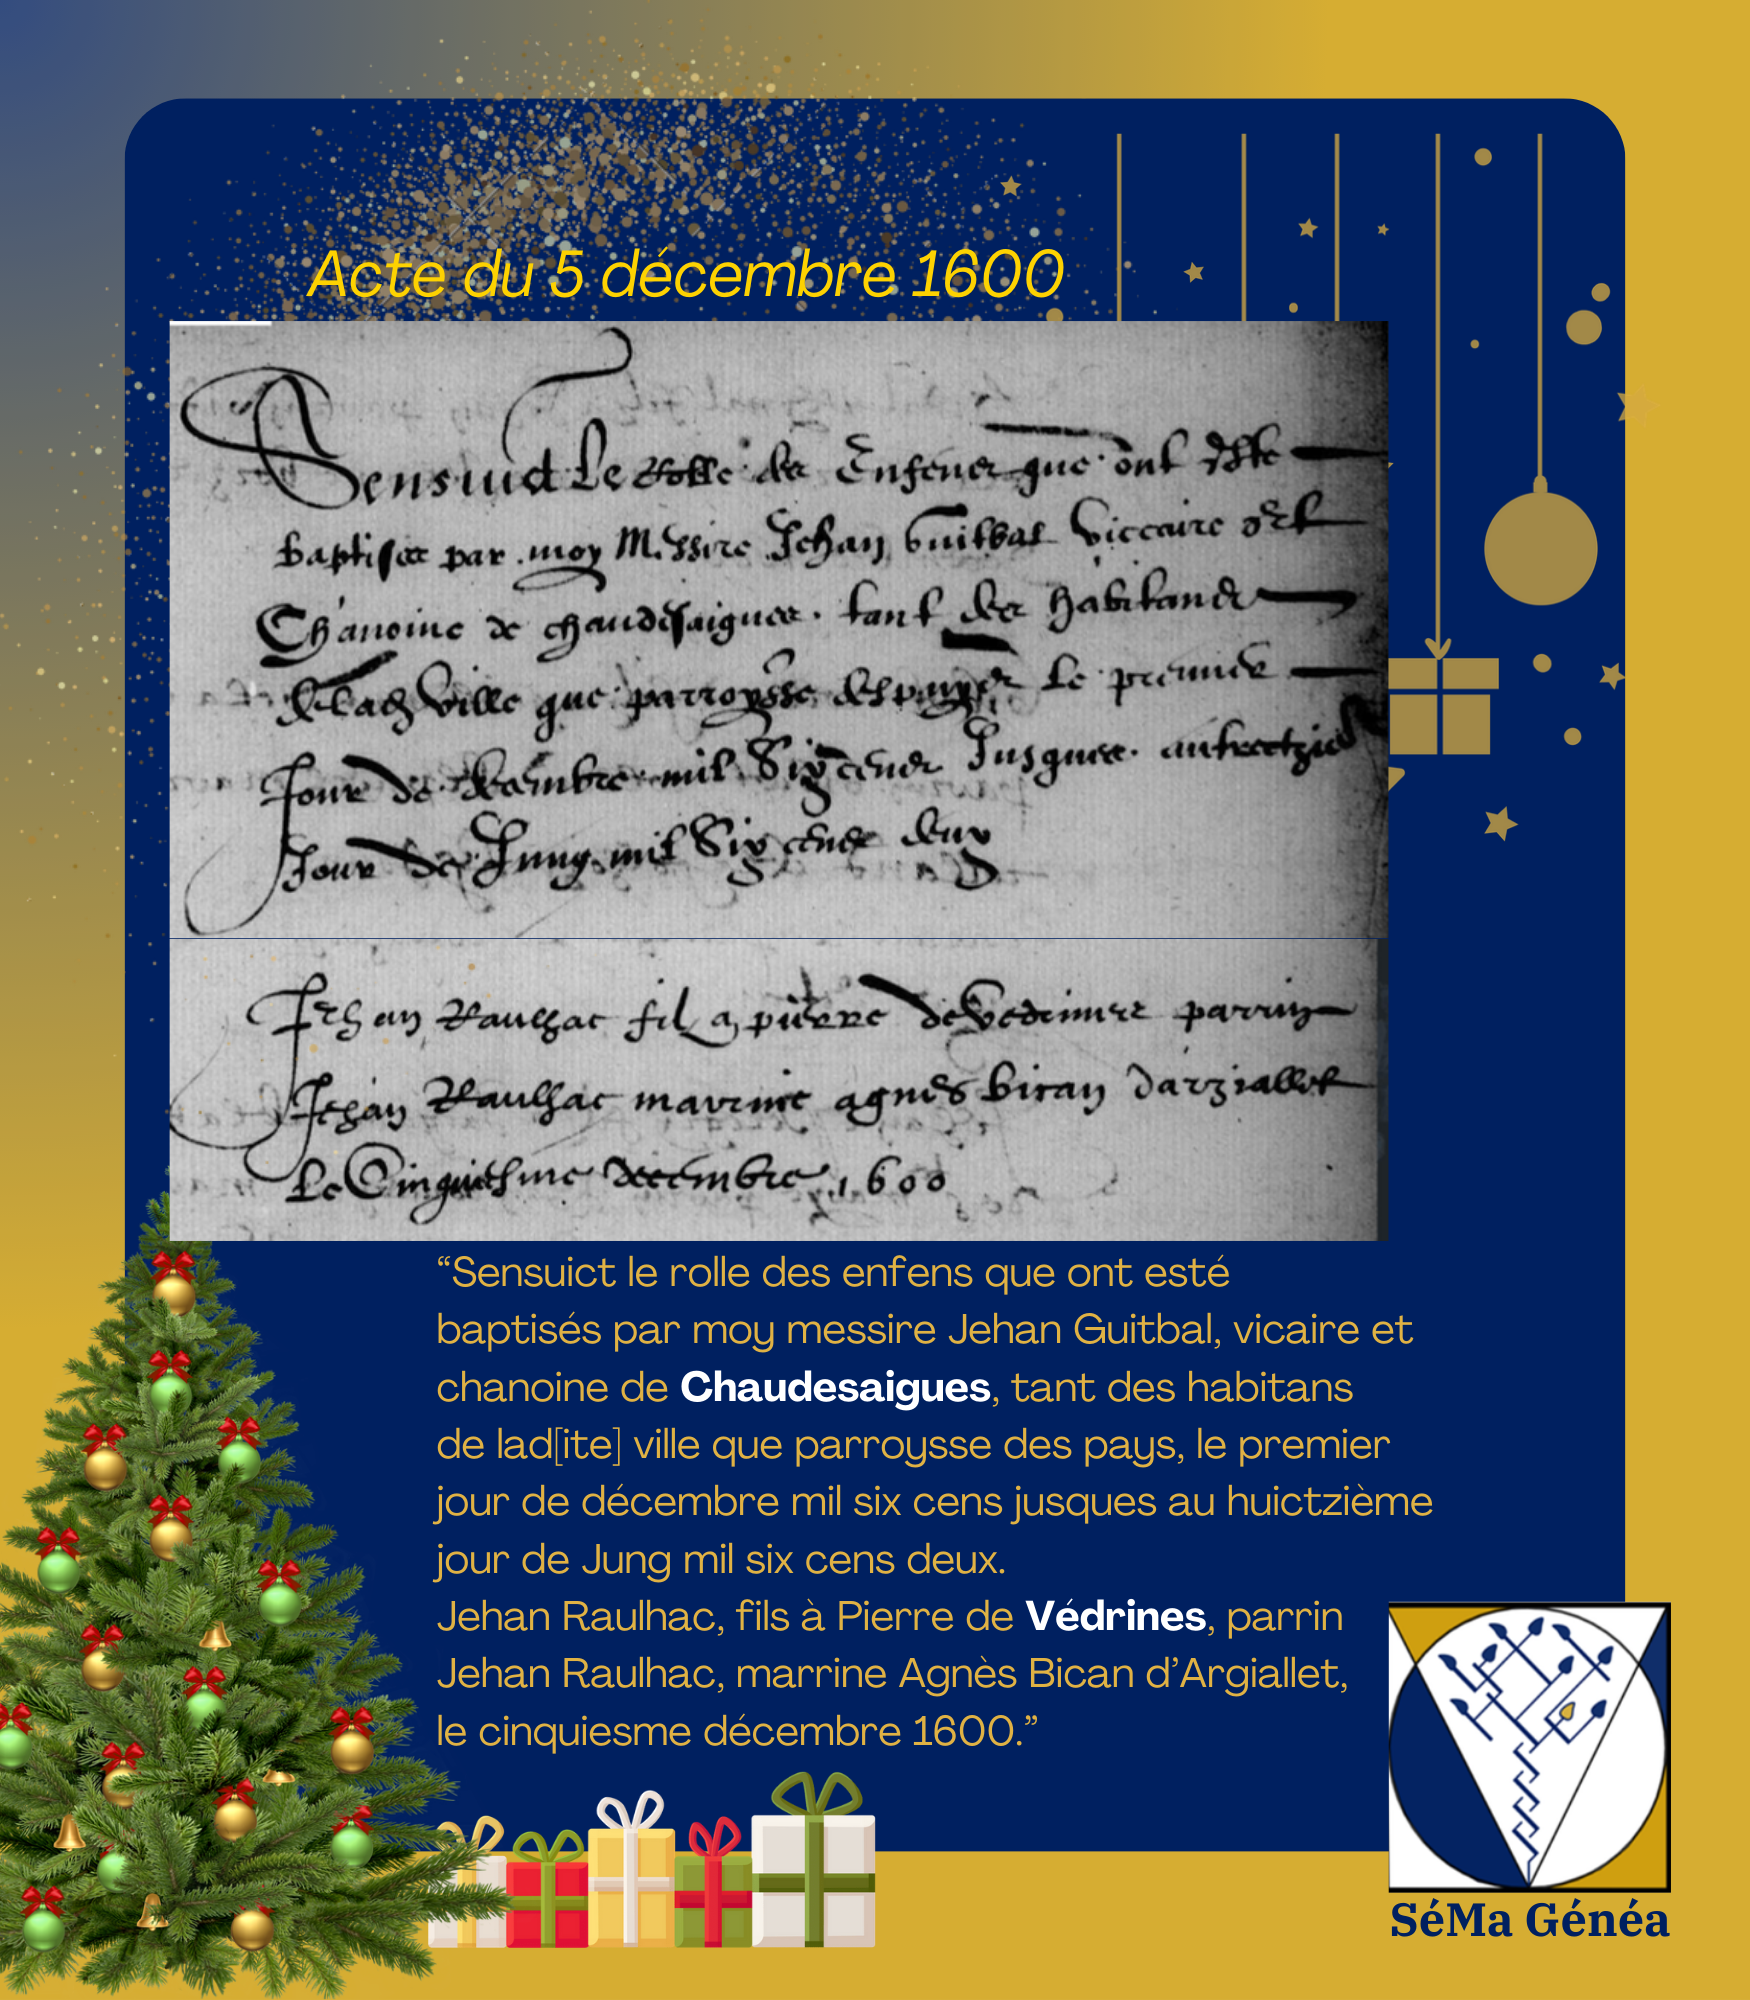 Acte du 5 décembre 1600
Sensuict Le Rolle des Enfens que ont esté
baptisés par moy Messire Jehan Guitbal Viccaire et
Chanoine de chaudesaigues tant des habitans
de lad ville que parroysse des pays Le premier
Jour de décembre mil Six cens Jusques au
Jour de Jung mil Six cens deux
Jehan Raulhac fil a pierre de Vedrines parrin
Jehan Raulhac marrine agnes bican
Le Cinquiesme décembre 1600
“Sensuict le rolle des enfens que ont esté
baptisés par moy messire Jehan Guitbal, vicaire et
chanoine de Chaudesaigues, tant des habitans
de lad[ite] ville que parroysse des pays, le premier
jour de décembre mil six cens jusques au huictzième
jour de Jung mil six cens deux.
Jehan Raulhac, fils à Pierre de Védrines, parrin
Jehan Raulhac, marrine Agnès Bican d’Argiallet,
le cinquiesme décembre 1600.”
SéMa Généa